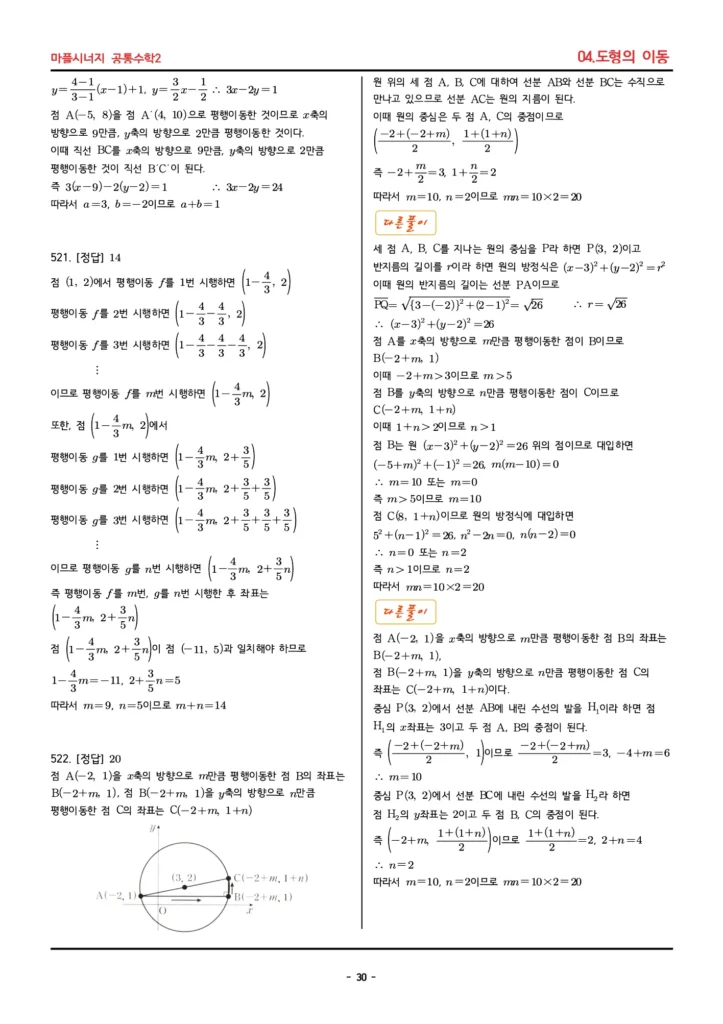 마플시너지 공통수학2
04.도형의 이동
y=\frac{4-1}{3-1}(x-1)+1, y=\frac{3}{2}x-\frac{1}{2} ∴ 3x-2y=1
점 A(-5, 8)을 점 A´(4, 10)으로 평행이동한 것이므로 x축의
방향으로 9만큼, y축의 방향으로 2만큼 평행이동한 것이다.
이때 직선 BC를 x축의 방향으로 9만큼, y축의 방향으로 2만큼
평행이동한 것이 직선 B´C´이 된다.
즉 3(x-9)-2(y-2)=1 ∴ 3x-2y=24
따라서 a=3, b=-2이므로 a+b=1
521. [정답] 14
점 (1, 2)에서 평행이동 f를 1번 시행하면 (1-\frac{4}{3}, 2)
평행이동 f를 2번 시행하면 (1-\frac{4}{3}-\frac{4}{3}, 2)
평행이동 f를 3번 시행하면 (1-\frac{4}{3}-\frac{4}{3}-\frac{4}{3}, 2)
⋮
이므로 평행이동 f를 m번 시행하면 (1-\frac{4}{3}m, 2)
또한, 점 (1-\frac{4}{3}m, 2)에서
평행이동 g를 1번 시행하면 (1-\frac{4}{3}m, 2+\frac{3}{5})
평행이동 g를 2번 시행하면 (1-\frac{4}{3}m, 2+\frac{3}{5}+\frac{3}{5})
평행이동 g를 3번 시행하면 (1-\frac{4}{3}m, 2+\frac{3}{5}+\frac{3}{5}+\frac{3}{5})
⋮
이므로 평행이동 g를 n번 시행하면 (1-\frac{4}{3}m, 2+\frac{3}{5}n)
즉 평행이동 f를 m번, g를 n번 시행한 후 좌표는
(1-\frac{4}{3}m, 2+\frac{3}{5}n)
점 (1-\frac{4}{3}m, 2+\frac{3}{5}n)이 점 (-11, 5)과 일치해야 하므로
1-\frac{4}{3}m=-11, 2+\frac{3}{5}n=5
따라서 m=9, n=5이므로 m+n=14
522. [정답] 20
점 A(-2, 1)을 x축의 방향으로 m만큼 평행이동한 점 B의 좌표는
B(-2+m, 1), 점 B(-2+m, 1)을 y축의 방향으로 n만큼
평행이동한 점 C의 좌표는 C(-2+m, 1+n)
y
(3, 2)
C(-2+m, 1+n)
A(-2, 1)
B(-2+m, 1)
O
x
원 위의 세 점 A, B, C에 대하여 선분 AB와 선분 BC는 수직으로
만나고 있으므로 선분 AC는 원의 지름이 된다.
이때 원의 중심은 두 점 A, C의 중점이므로
(\frac{-2+(-2+m)}{2}, \frac{1+(1+n)}{2})
즉 -2+\frac{m}{2}=3, 1+\frac{n}{2}=2
따라서 m=10, n=2이므로 mn=10×2=20
다른 풀이
세 점 A, B, C를 지나는 원의 중심을 P라 하면 P(3, 2)이고
반지름의 길이를 r이라 하면 원의 방정식은 (x-3)²+(y-2)²=r²
이때 원의 반지름의 길이는 선분 PA이므로
\overline{PQ}=\sqrt{{3-(-2)}²+(2-1)²}=\sqrt{26} ∴ r=\sqrt{26}
∴ (x-3)²+(y-2)²=26
점 A를 x축의 방향으로 m만큼 평행이동한 점이 B이므로
B(-2+m, 1)
이때 -2+m>3이므로 m>5
점 B를 y축의 방향으로 n만큼 평행이동한 점이 C이므로
C(-2+m, 1+n)
이때 1+n>2이므로 n>1
점 B는 원 (x-3)²+(y-2)²=26 위의 점이므로 대입하면
(-5+m)²+(-1)²=26, m(m-10)=0
∴ m=10 또는 m=0
즉 m>5이므로 m=10
점 C(8, 1+n)이므로 원의 방정식에 대입하면
5²+(n-1)²=26, n²-2n=0, n(n-2)=0
∴ n=0 또는 n=2
즉 n>1이므로 n=2
따라서 mn=10×2=20
다른 풀이
점 A(-2, 1)을 x축의 방향으로 m만큼 평행이동한 점 B의 좌표는
B(-2+m, 1),
점 B(-2+m, 1)을 y축의 방향으로 n만큼 평행이동한 점 C의
좌표는 C(-2+m, 1+n)이다.
중심 P(3, 2)에서 선분 AB에 내린 수선의 발을 H₁이라 하면 점
H₁의 x좌표는 3이고 두 점 A, B의 중점이 된다.
즉 (\frac{-2+(-2+m)}{2}, 1)이므로 \frac{-2+(-2+m)}{2}=3, -4+m=6
∴ m=10
중심 P(3, 2)에서 선분 BC에 내린 수선의 발을 H₂라 하면
점 H₂의 y좌표는 2이고 두 점 B, C의 중점이 된다.
즉 (-2+m, \frac{1+(1+n)}{2})이므로 \frac{1+(1+n)}{2}=2, 2+n=4
∴ n=2
따라서 m=10, n=2이므로 mn=10×2=20
- 30 -